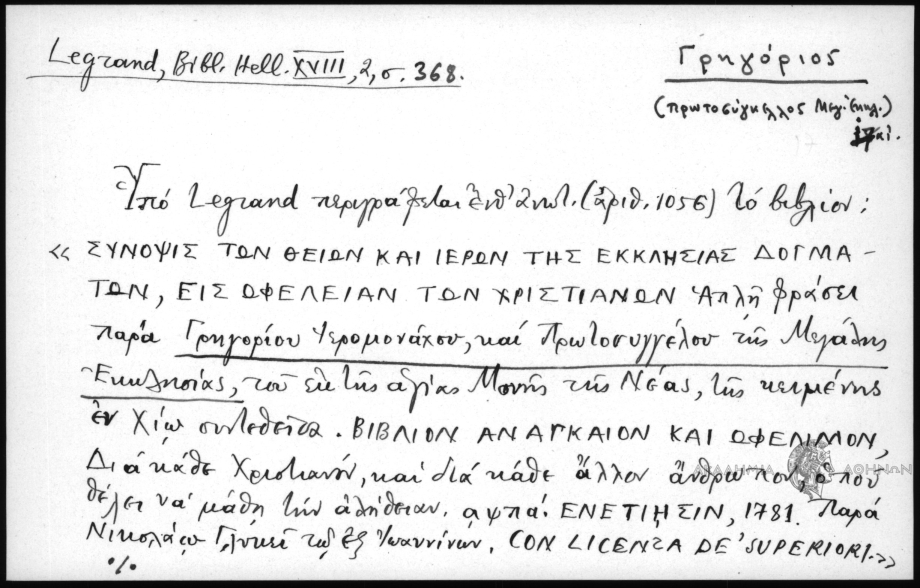 Legrand, Bibl. Hell. XVIII, 2, σ. 368.
Γρηγόριος
(πρωτοσύγκελλος Μεγ. Ἐκκλ.)
κἰ.
Ὑπό Legrand περιγράφεται ἐνθ' ἀνωτ. (ἀριθ. 1056) τό βιβλίον:
« ΣΥΝΟΨΙΣ ΤΩΝ ΘΕΙΩΝ ΚΑΙ ΙΕΡΩΝ ΤΗΣ ΕΚΚΛΗΣΙΑΣ ΔΟΓΜΑ-
ΤΩΝ, ΕΙΣ ΩΦΕΛΕΙΑΝ ΤΩΝ ΧΡΙΣΤΙΑΝΩΝ Ἁπλῇ φράσει
παρά Γρηγορίου Ἱερομονάχου, καί Πρωτοσυγγέλου τῆς Μεγάλης
Ἐκκλησίας, τοῦ ἐκ τῆς ἁγίας Μονῆς τῆς Νέας, τῆς κειμένης
ἐν Χίῳ συντεθεῖσα. ΒΙΒΛΙΟΝ ΑΝΑΓΚΑΙΟΝ ΚΑΙ ΩΦΕΛΙΜΟΝ,
Διά κάθε Χριστιανόν, καί διά κάθε ἄλλον ἄνθρωπον, ὁποῦ
θέλει νά μάθῃ τήν ἀλήθειαν. αψπά. ΕΝΕΤΙΗΣΙΝ, 1781. Παρά
Νικολάῳ Γλυκεῖ τῷ ἐξ Ἰωαννίνων. CON LICENZA DE' SUPERIORI.»
•/•
ΑΚΑΔΗΜΙΑ ΑΘΗΝΩΝ